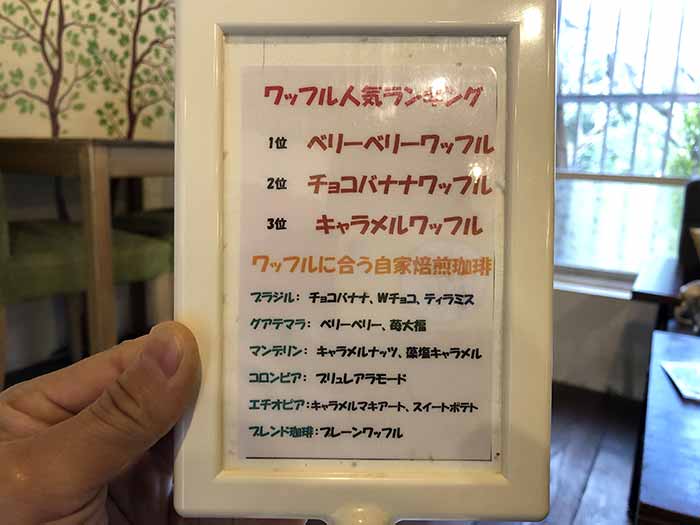 ワッフル人気ランキング
1位 ベリーベリーワッフル
2位 チョコバナナワッフル
3位 キャラメルワッフル
ワッフルに合う自家焙煎珈琲
ブラジル: チョコバナナ、Wチョコ、ティラミス
グアテマラ: ベリーベリー、苺大福
マンデリン:キャラメルナッツ、藻塩キャラメル
コロンビア: ブリュレアラモード
エチオピア:キャラメルマキアート、スイートポテト
ブレンド珈琲:プレーンワッフル